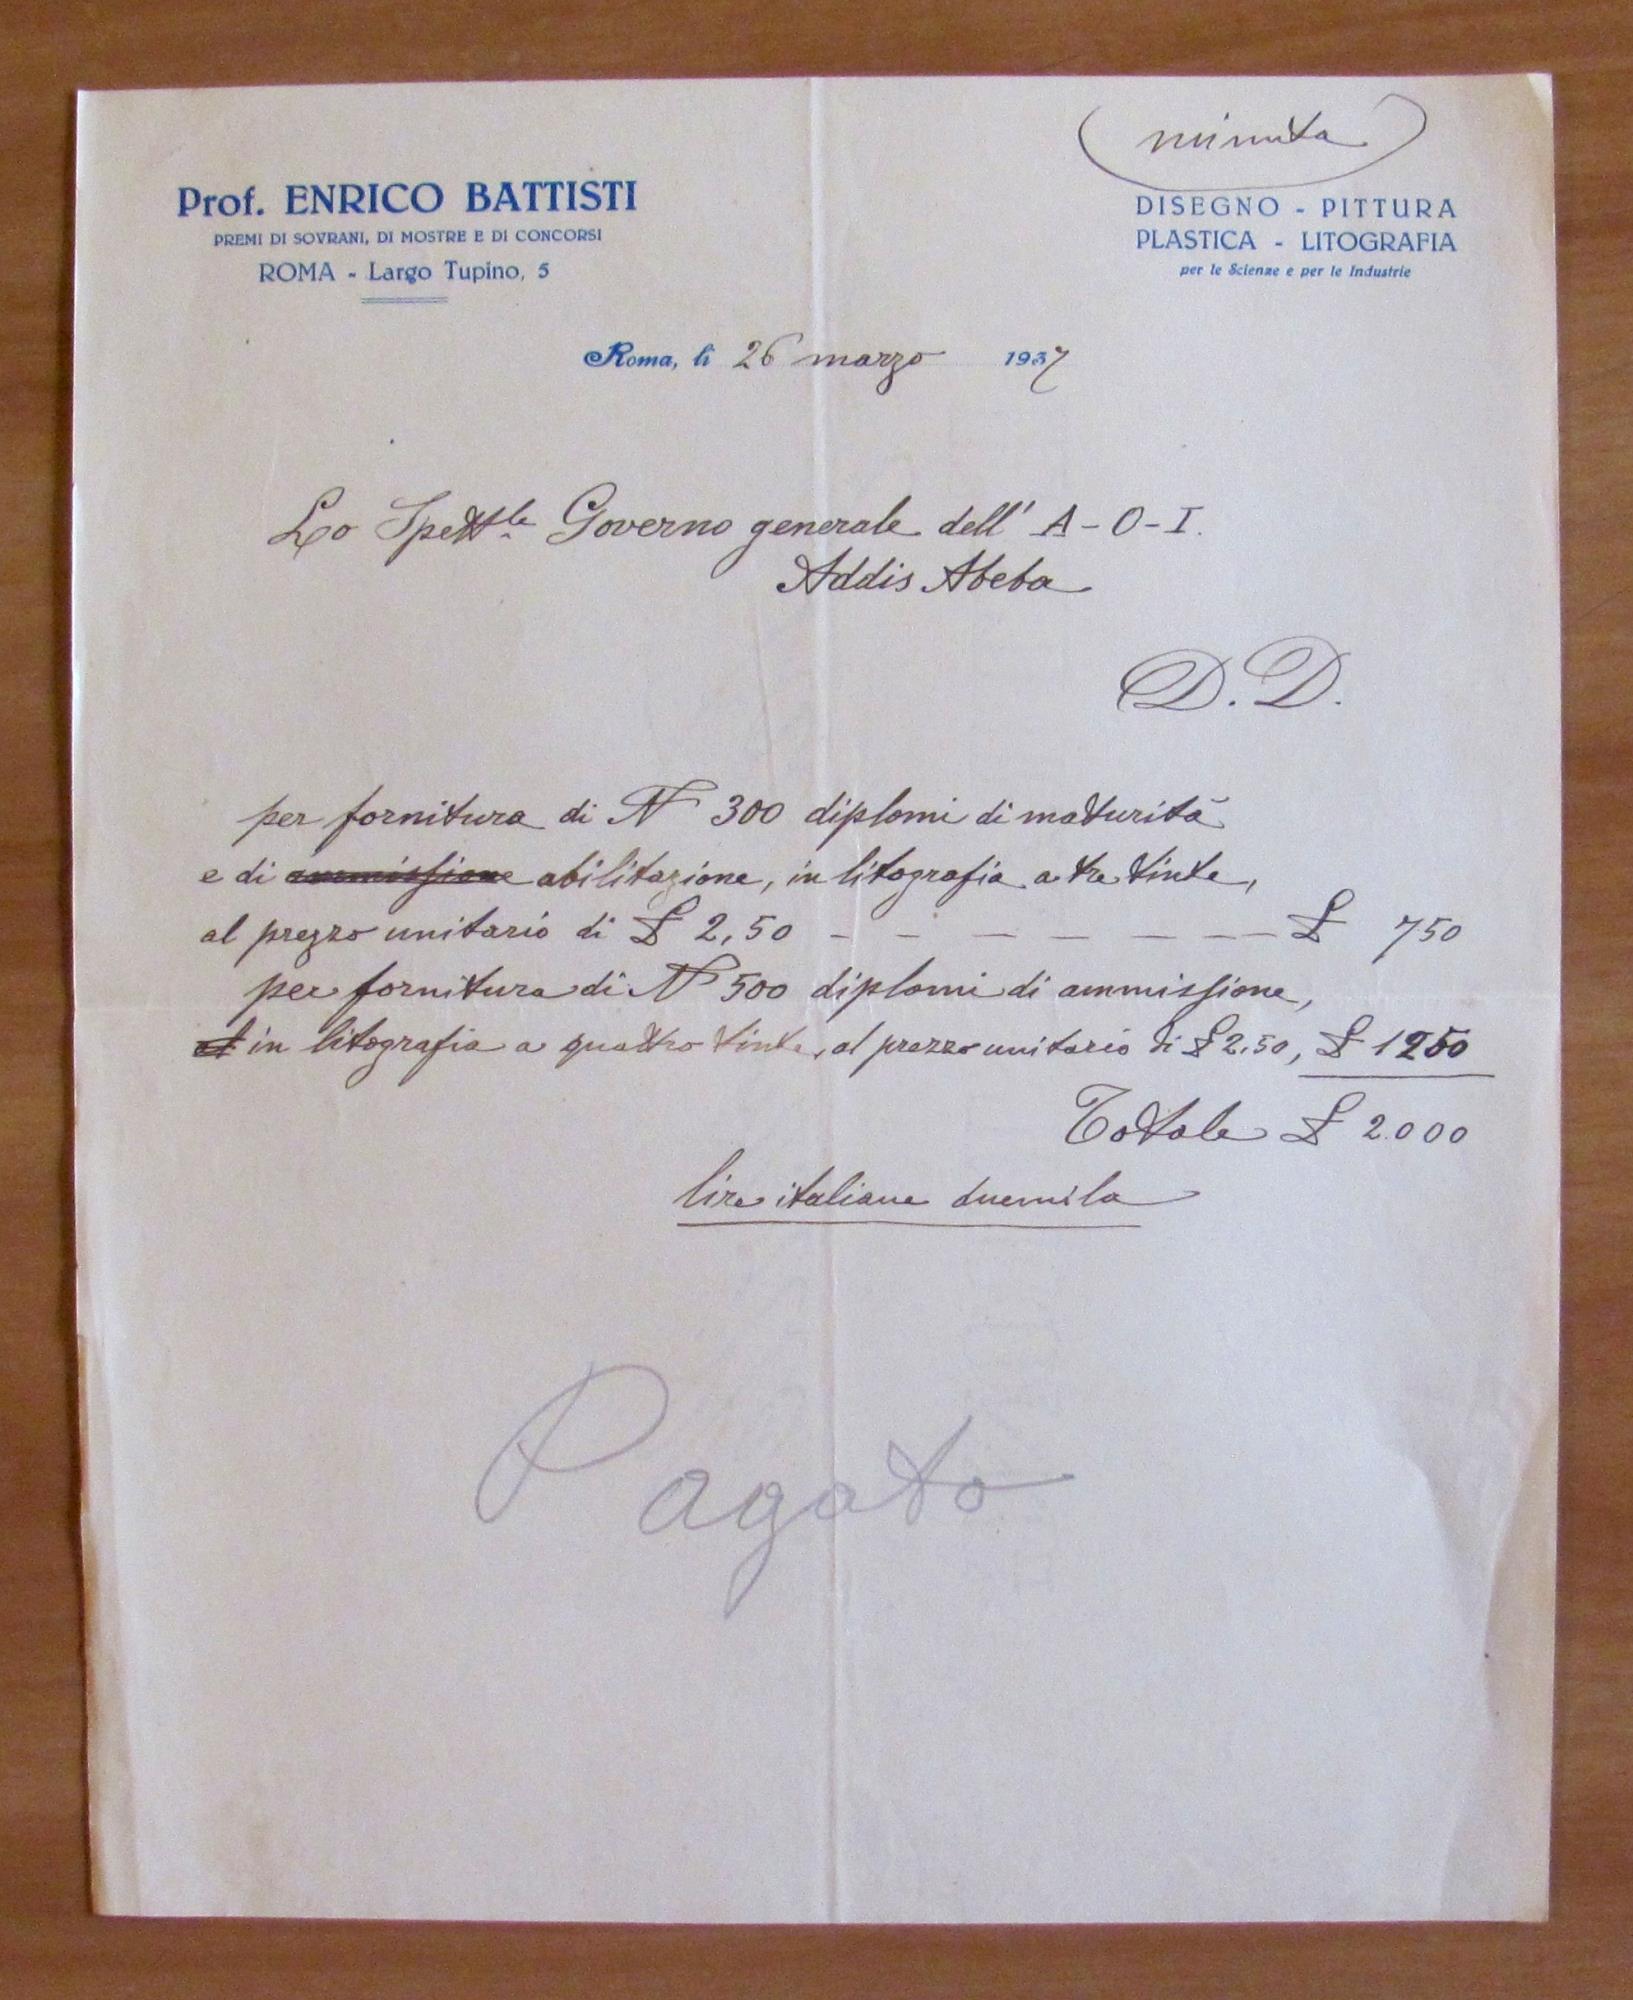 minuta
Prof. ENRICO BATTISTI
PREMI DI SOVRANI, DI MOSTRE E DI CONCORSI
ROMA - Largo Tupino, 5
DISEGNO - PITTURA
PLASTICA - LITOGRAFIA
per le Scienze e per le Industrie
Roma, lì 26 marzo 1937
Lo Spett.le Governo generale dell' A-O-I.
Addis Abeba
D. D.
per fornitura di N 300 diplomi di maturità
e di ammissione abilitazione, in litografia a tre tinte,
al prezzo unitario di £ 2,50 - - - - - - - £ 750
per fornitura di N 500 diplomi di ammissione,
in litografia a quattro tinte, al prezzo unitario di £ 2,50, £ 1250
Totale £ 2.000
lire italiane duemila
Pagato